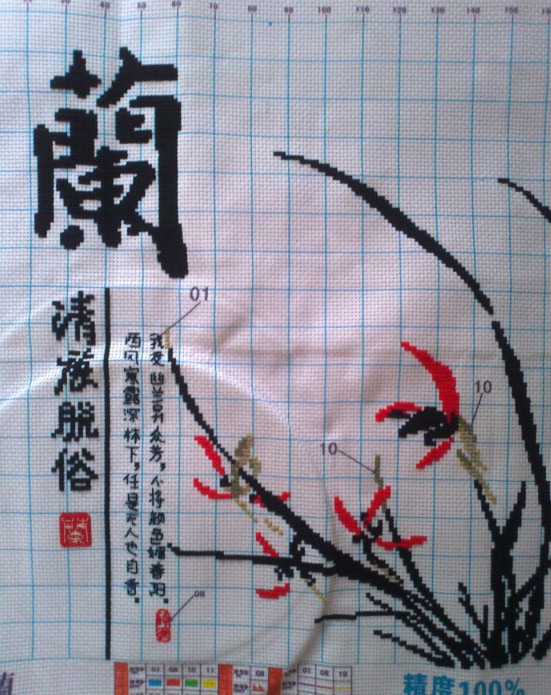 90 100 110 120 130 140 150
蘭
清
脱俗
我爱幽兰异众芳,不将颜色媚春阳.
西风寒露深林下,任是无人也自香.
01
10
10
08
精度100%